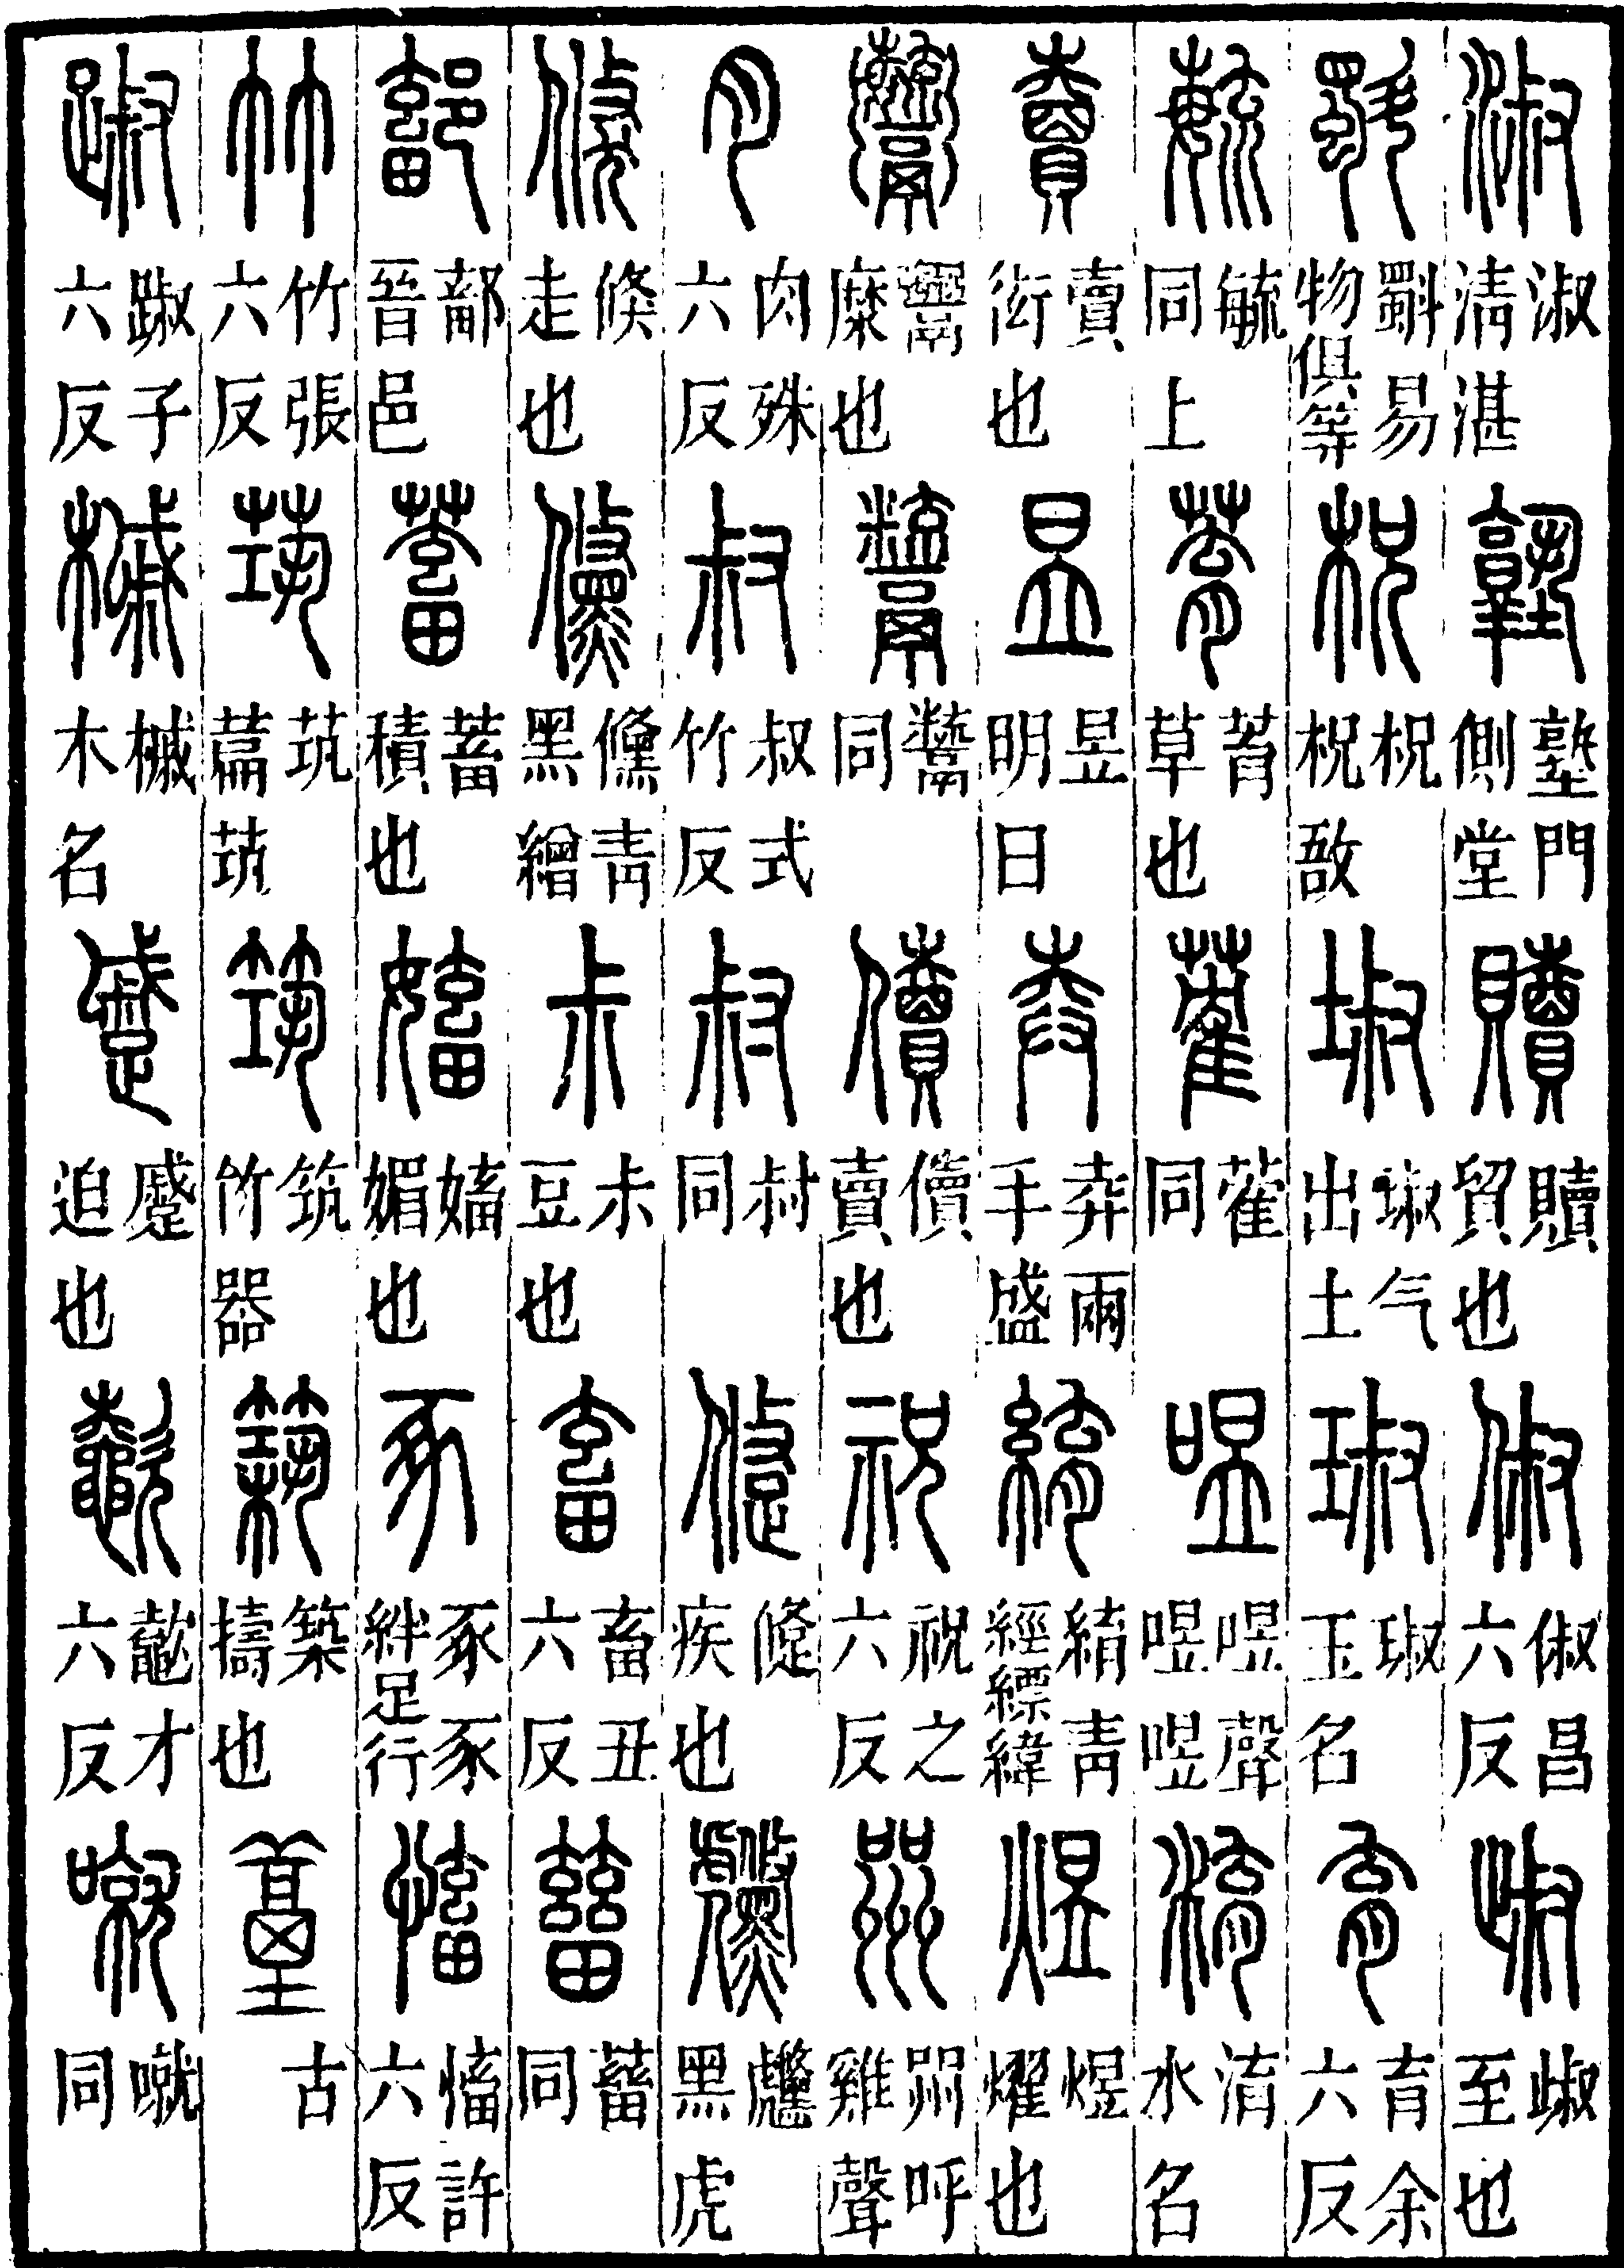 淑 淑清湛 塾 塾門側堂 贖 贖貿也 俶 俶昌六反 至也
斣 斣易物俱等 柷 柷柷敔 埱 埱气出土 琡 琡玉名 育 育余六反
毓 毓同上 草也 蒮 蒮同 喅 喅聲喅喅 淯 淯水名
賣 賣衒也 昱 昱明日 兩手盛 青經縹緯 煜 煜燿也
鬻 鬻糜也 同 儥 儥賣也 祝 祝之六反 喌 喌呼雞聲
肉 肉殊六反 叔 叔式竹反 同 疾也 虪 虪黑虎
倏 倏走也 儵 儵青黑繒 尗 尗豆也 畜 畜丑六反 同
鄐 鄐晉邑 蓄 蓄積也 媚也 豖 豖豖絆足行 慉 慉許六反
竹 竹張六反 茿 茿萹茿 筑 筑竹器 築 築擣也 古
踧 踧子六反 槭 槭木名 蹙 蹙迫也 才六反 噈 噈同